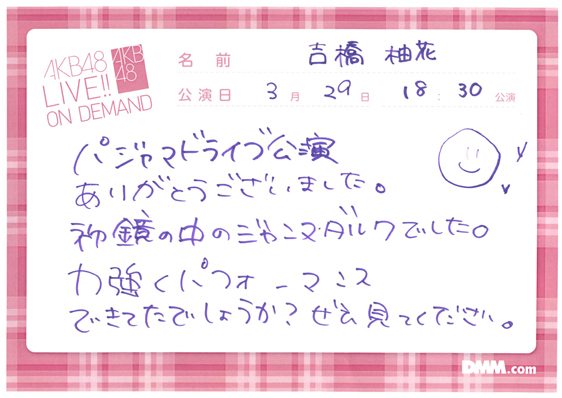 AKB48
LIVE!!
ON DEMAND
AKB
48
名前 吉橋 柚花
公演日 3月 29日 18:30 公演
パジャマドライブ公演
ありがとうございました。
初鏡の中のジャンヌ・ダルクでした。
力強くパフォーマンス
できてたでしょうか？ぜひ見てください。
DMM.com